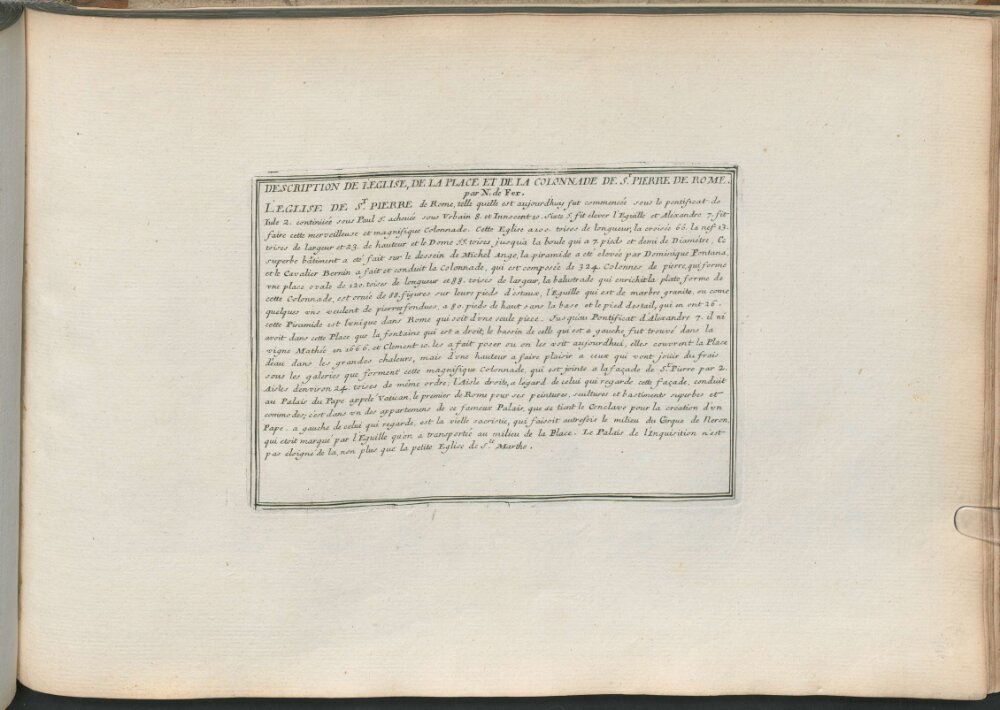 DESCRIPTION DE L'EGLISE, DE LA PLACE ET DE LA COLONNADE DE S.T PIERRE DE ROME.
par N. de Fer.
L'EGLISE DE S.T PIERRE de Rome, telle qu'elle est aujourdhuy, fut commencée sous le pontificat de
Iule 2. continüée sous Paul 5. acheuée sous Vrbain 8. et Innocent 10. Sixte 5. fit élever l'Eguille et Alexandre 7. fit
faire cette merveilleuse et magnifique Colonnade. Cette Eglise a 100. toises de longueur, la croisée 66. la nef 13.
toises de largeur et 23. de hauteur et le Dome 55. toises jusqu'a la boule qui a 7. pieds et demi de Diametre. Ce
superbe bâtiment a eté fait sur le dessein de Michel Ange, la piramide a eté elevée par Dominique Fontana,
et le Cavalier Bernin a fait et conduit la Colonnade, qui est composée de 324. Colonnes de pierre, qui forme
vne place ovale de 120. toises de longueur et 88. toises de largeur, la balustrade qui enrichit la platte forme de
cette Colonnade, est ornée de 88. figures sur leurs pieds d'estaux, l'Eguille qui est de marbre granite, ou come
quelques vns veulent de pierres fondues, a 80. pieds de haut sans la base, et le pied destail, qui en ont 26.
cette Piramide est l'unique dans Rome qui soit d'vne seule piece. Jusqu'au Pontificat d'Alexandre 7. il ni
avoit dans cette Place que la fontaine qui est a droit, le bassin de celle qui est a gauche fut trouvé dans la
vigne Mathée en 1666. et Clement 10. les a fait poser ou on les voit aujourdhui, elles couvrent la Place
d'eau dans les grandes chaleurs, mais d'vne hauteur a faire plaisir a ceux qui vont joüir du frais
sous les galeries que forment cette magnifique Colonnade, qui est jointe a la façade de S.t Pierre par 2.
Aisles d'environ 24. toises de même ordre; l'Aisle droite, a legard de celui qui regarde cette façade, conduit
au Palais du Pape appelé Vatican, le premier de Rome pour ses peintures, scultures et bastiments superbes et
commodes; c'est dans vn des appartemens de ce fameux Palais, que se tient le Conclave pour la création d'vn
Pape. a gauche de celui qui regarde, est la vielle sacristie, qui faisoit autrefois le milieu du Cirque de Neron,
qui etoit marqué par l'Eguille qu'on a transportée au milieu de la Place. Le Palais de l'Inquisition n'est
pas eloigné de la, non plus que la petite Eglise de S.te Marthe.